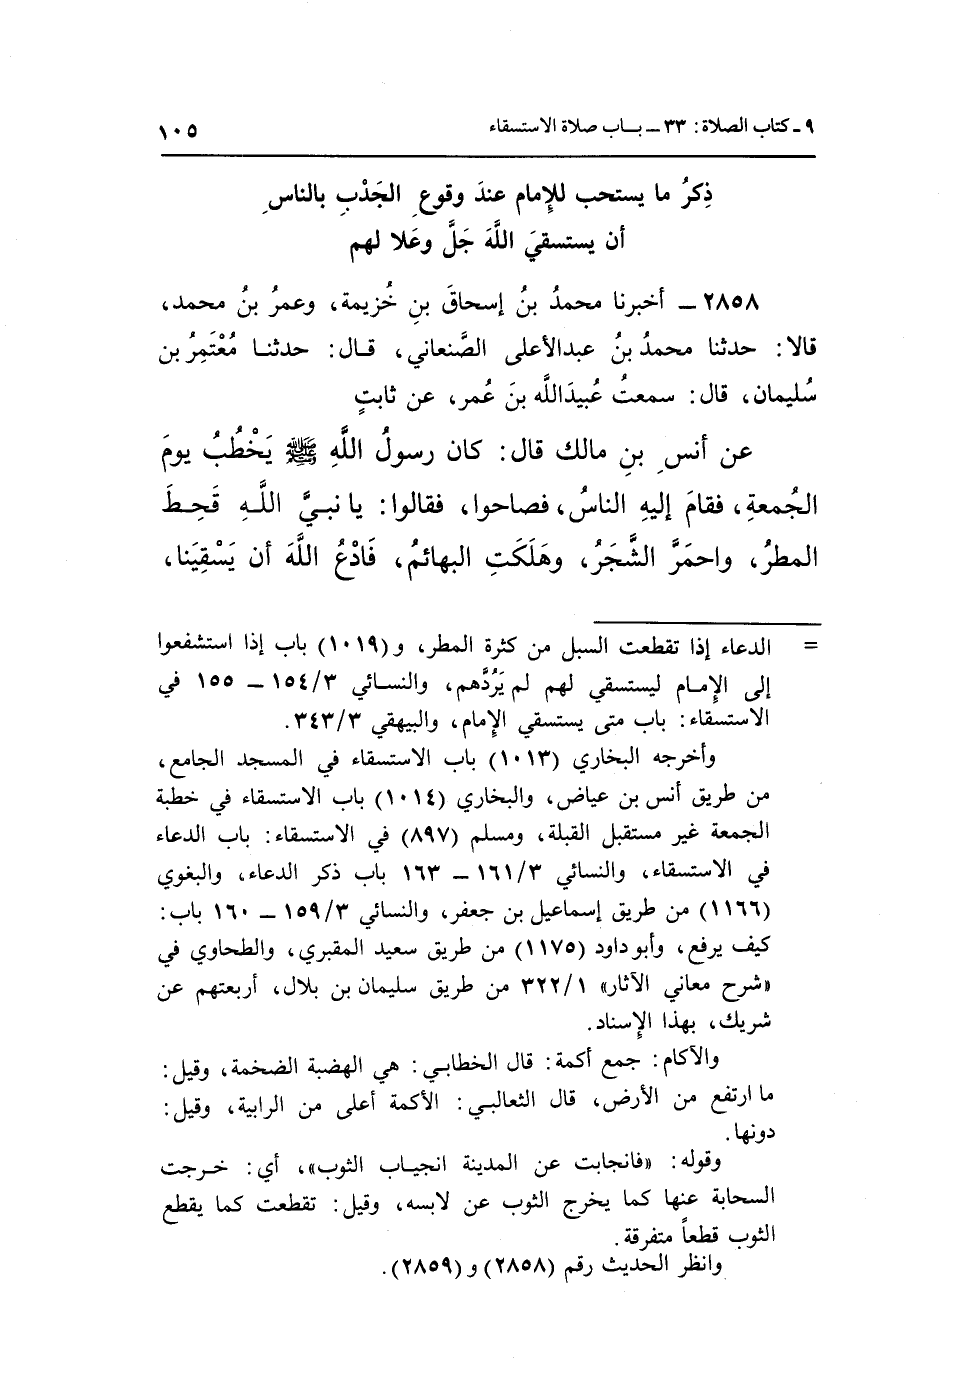 ٩ ـ كتاب الصلاة: ٣٣ ــ بـاب صلاة الاستسقاء ١٠٥
ذِكرُ ما يستحب للإمام عندَ وقوعِ الجَدْبِ بالناسِ
أن يستسقيَ اللَّهَ جَلَّ وعَلا لهم
٢٨٥٨ ــ أخبرنا محمدُ بنُ إسحاقَ بنِ خُزيمة، وعمرُ بنُ محمد،
قالا: حدثنا محمدُ بنُ عبدالأعلى الصَّنعاني، قـال: حدثنـا مُعْتَمِرُ بن
سُليمان، قال: سمعتُ عُبيدَاللَّه بنَ عُمر، عن ثابتٍ
عن أنسِ بنِ مالك قال: كان رسولُ اللَّهِ ﷺ يَخْطُبُ يومَ
الجُمعةِ، فقامَ إليهِ الناسُ، فصاحوا، فقالوا: يا نبـيَّ اللَّـهِ قَحِـطَ
المطرُ، واحمَرَّ الشَّجَرُ، وهَلَكَتِ البهائمُ، فَادْعُ اللَّهَ أن يَسْقِيَنا،
= الدعاء إذا تقطعت السبل من كثرة المطر، و (١٠١٩) باب إذا استشفعوا
إلى الإمـام ليستسقي لهم لم يَرُدَّهم، والنسائي ٣/١٥٤ ــ ١٥٥ في
الاستسقاء: باب متى يستسقي الإمام، والبيهقي ٣/٣٤٣.
وأخرجه البخاري (١٠١٣) باب الاستسقاء في المسجد الجامع،
من طريق أنس بن عياض، والبخاري (١٠١٤) باب الاستسقاء في خطبة
الجمعة غير مستقبل القبلة، ومسلم (٨٩٧) في الاستسقاء: باب الدعاء
في الاستسقاء، والنسائي ٣/١٦١ ــ ١٦٣ باب ذكر الدعاء، والبغوي
(١١٦٦) من طريق إسماعيل بن جعفر، والنسائي ٣/١٥٩ ــ ١٦٠ باب:
كيف يرفع، وأبو داود (١١٧٥) من طريق سعيد المقبري، والطحاوي في
«شرح معاني الآثار» ١/٣٢٢ من طريق سليمان بن بلال، أربعتهم عن
شريك، بهذا الإسناد.
والآكام: جمع أكمة: قال الخطابي: هي الهضبة الضخمة، وقيل:
ما ارتفع من الأرض، قال الثعالبـي: الأكمة أعلى من الرابية، وقيل:
دونها.
وقوله: «فانجابت عن المدينة انجياب الثوب»، أي: خـرجت
السحابة عنها كما يخرج الثوب عن لابسه، وقيل: تقطعت كما يقطع
الثوب قطعاً متفرقة.
وانظر الحديث رقم (٢٨٥٨) و (٢٨٥٩).